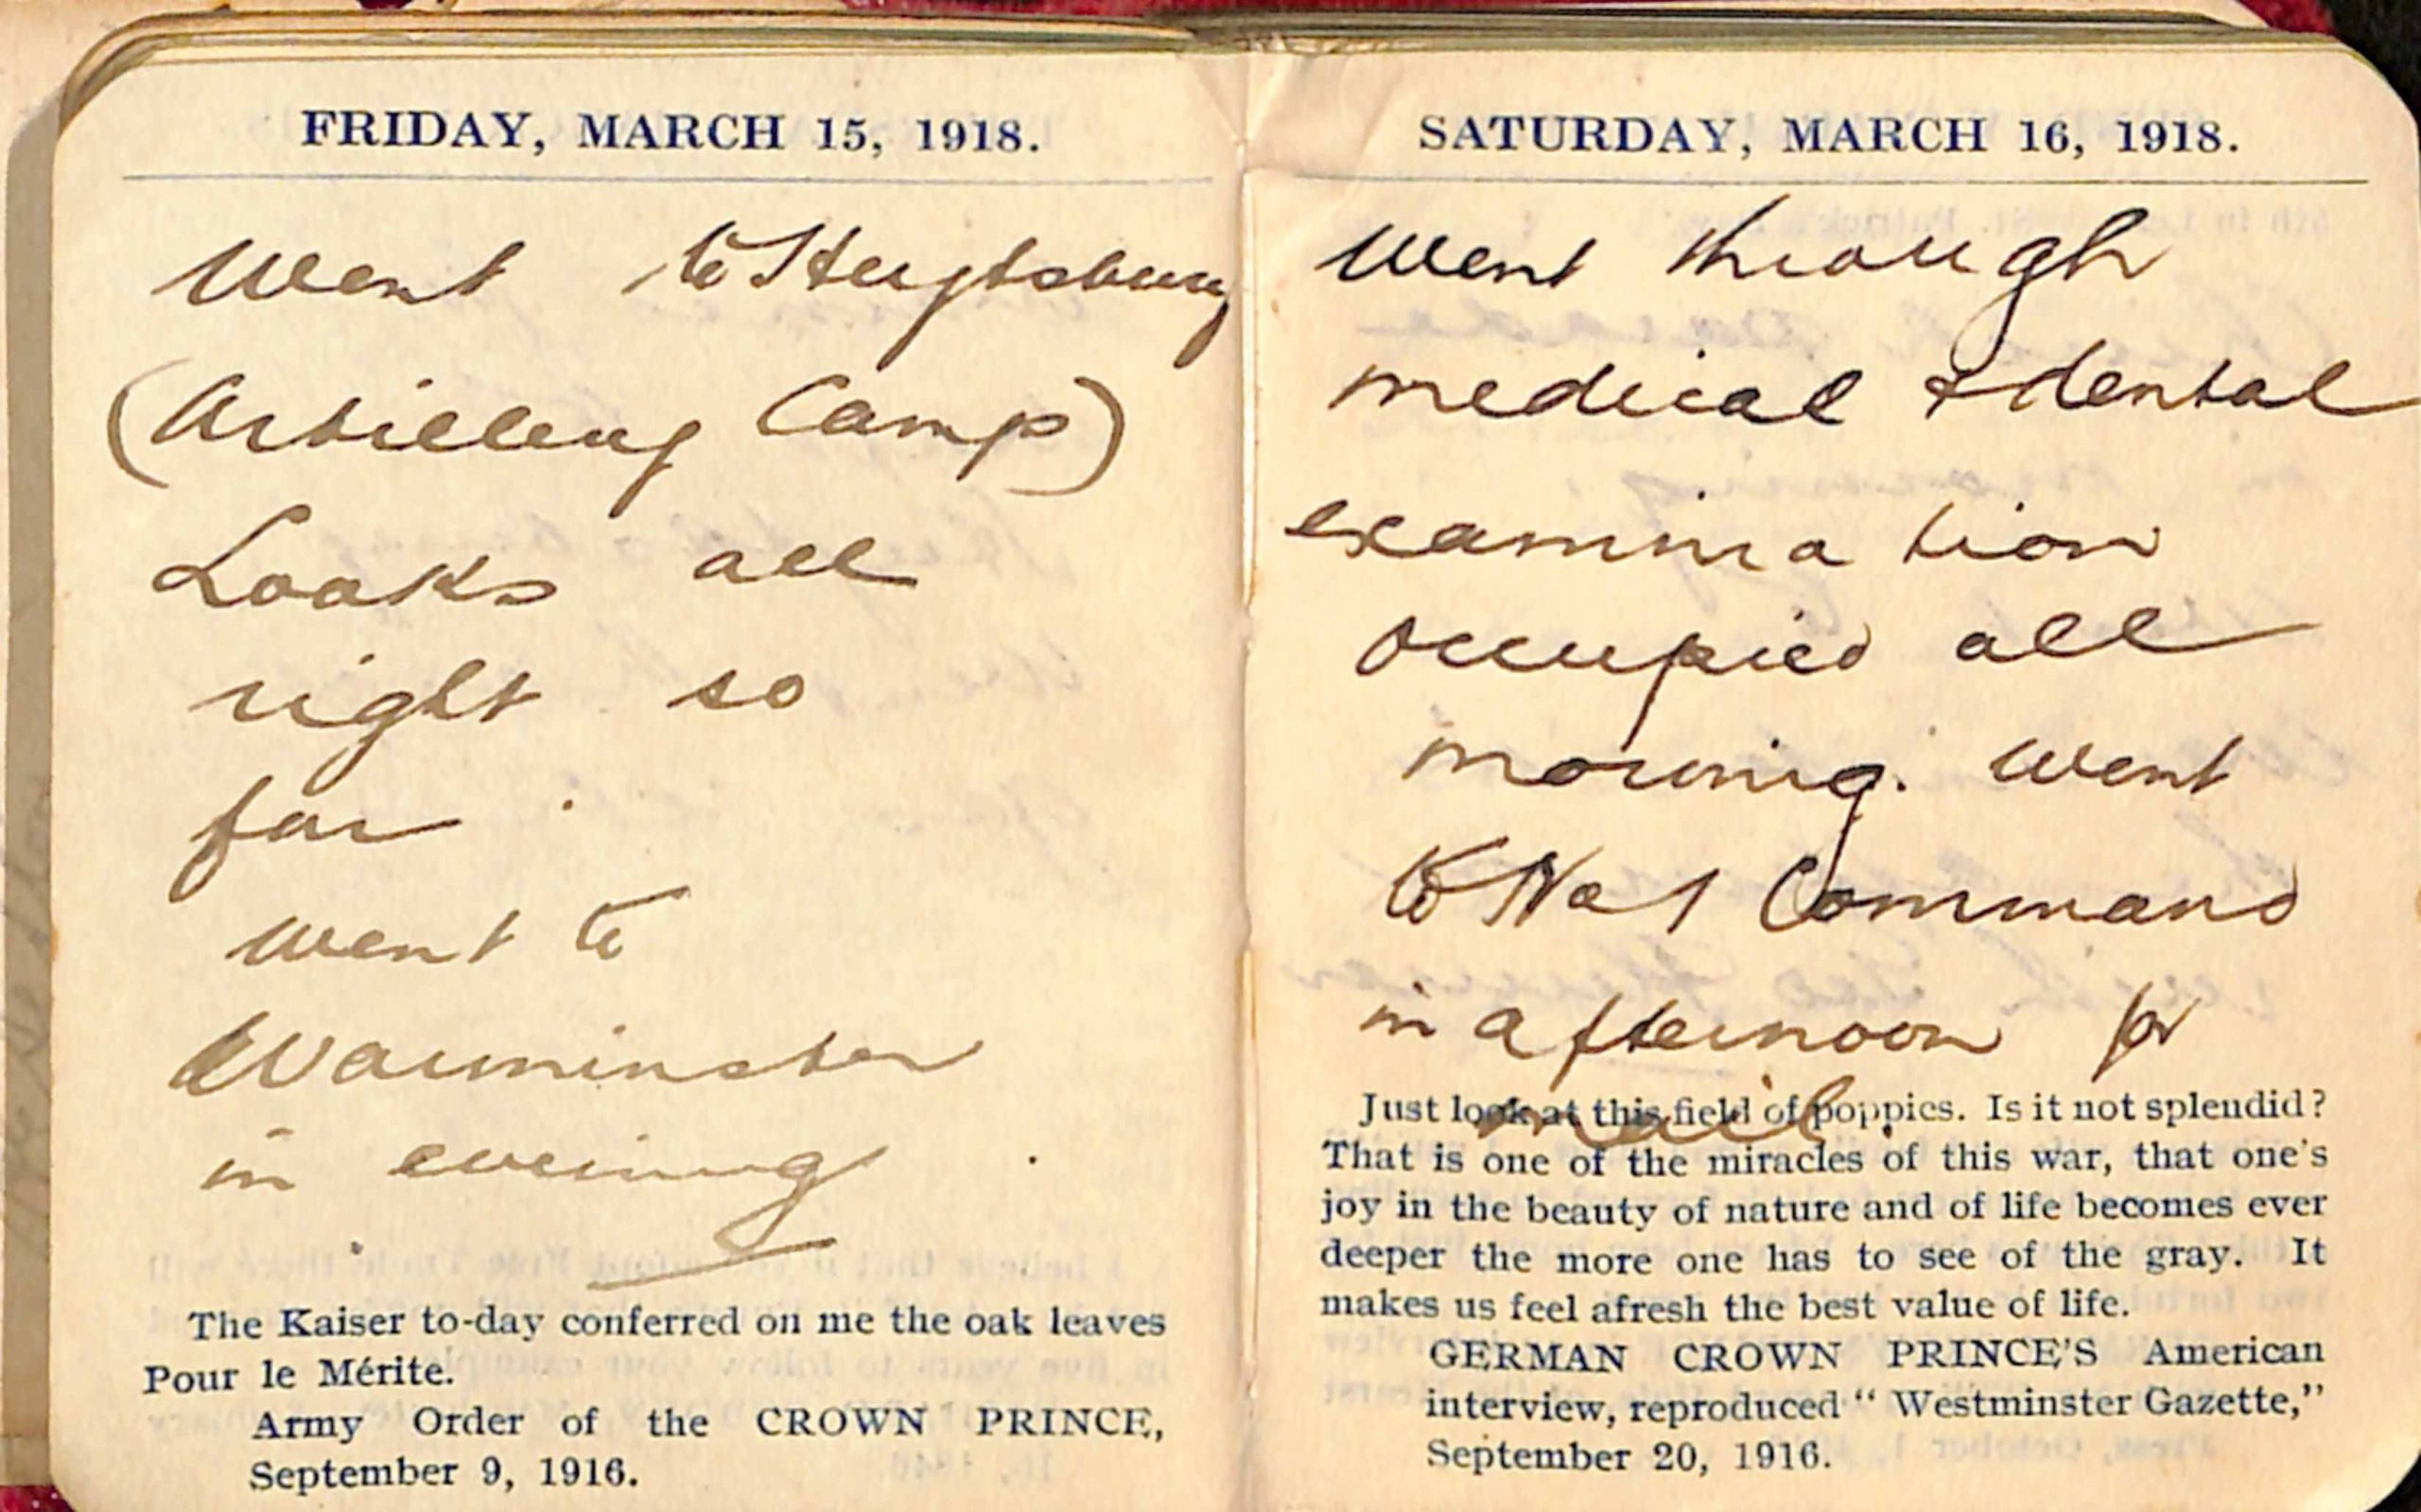 FRIDAY, MARCH 15, 1918.
Went to Heytsbury
(Artillery Camp)
Looks all
right so
far
went to
Warminster
in evening
The Kaiser to-day conferred on me the oak leaves
Pour le Mérite.
Army Order of the CROWN PRINCE,
September 9, 1916.
SATURDAY, MARCH 16, 1918.
Went through
medical & dental
examination
occupied all
morning. Went
to No 1 Command
in afternoon for
mail.
Just look at this field of poppies. Is it not splendid?
That is one of the miracles of this war, that one's
joy in the beauty of nature and of life becomes ever
deeper the more one has to see of the gray. It
makes us feel afresh the best value of life.
GERMAN CROWN PRINCE'S American
interview, reproduced "Westminster Gazette,"
September 20, 1916.